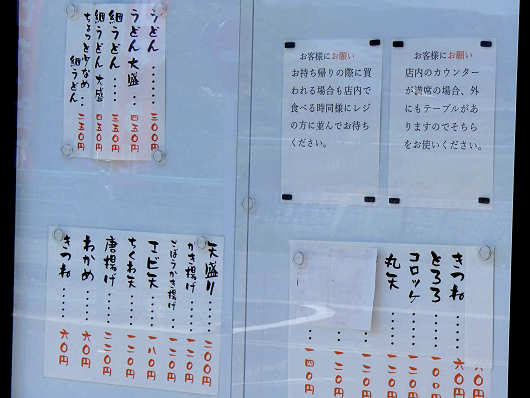 うどん……三〇〇円
うどん大盛…四五〇円
細うどん…三五〇円
細うどん大盛 四五〇円
ちょっと少なめ
細うどん…二五〇円
お客様にお願い
お持ち帰りの際に買
われる場合も店内で
食べる時同様にレジ
の方に並んでお待ち
ください。
お客様にお願い
店内のカウンター
が満席の場合、外
にもテーブルがあ
りますのでそちら
をお使いください。
天盛り……二〇〇円
かき揚げ……一二〇円
ごぼうかき揚げ…一二〇円
エビ天……一八〇円
ちくわ天……一二〇円
唐揚げ……二二〇円
わかめ……六〇円
きつね……六〇円
きつね
とろろ
コロッケ
丸天